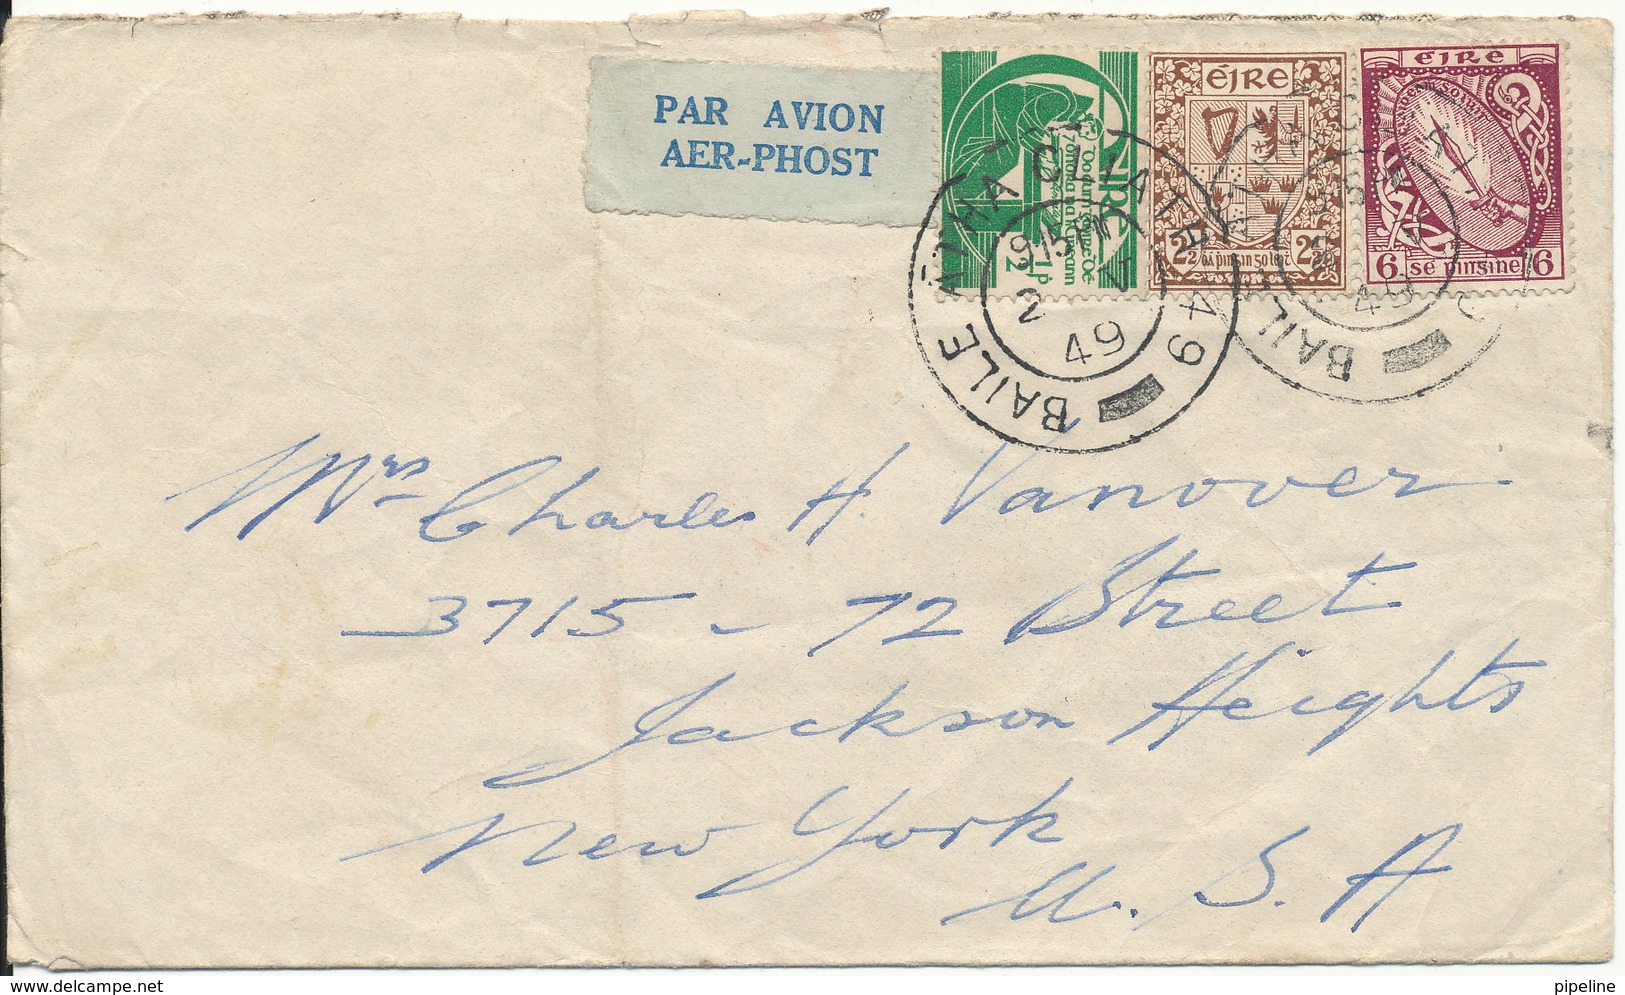 PAR AVION
AER-PHOST
½p
ÉIRE
2½ 2½
ÉIRE
6 sé pinsine 6
BAILE ÁTHA CLIATH
49
BAILE
49
Mrs Charles H. Vanover.
3715 - 72 Street
Jackson Heights
New York
U. S. A
pipeline